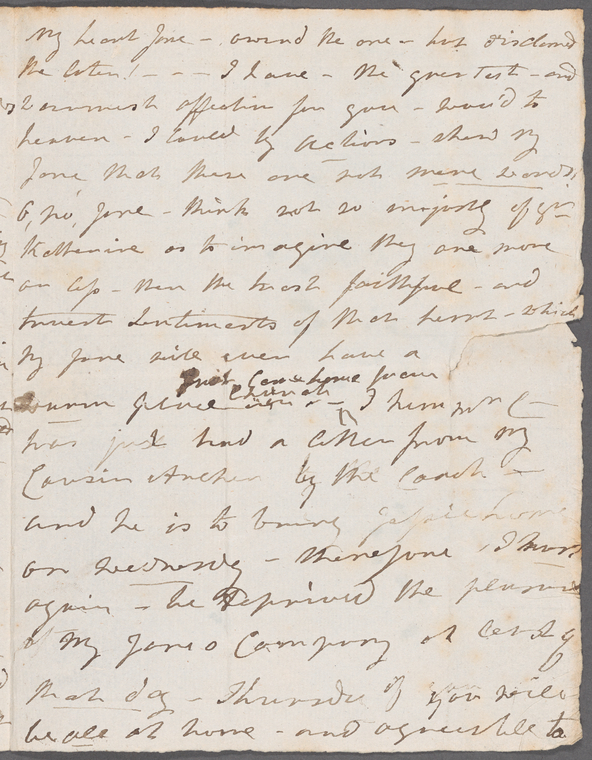 My heart Jane - owend the one - but disclamed
the later! - - - I have - the greatest - and
warmest affection for you - woud to
heaven - I coued by actions - shew my
Jane that these are not mere words,
O, no, Jane - think not so unjustly of yr
Katherine as to imagine they are more
on lip - then the most faithful - and
truest Sentiments of that heart - which
My Jane will ever have a
just come home from
Church
warm place - I
has just had a letter from My
Cousin Archer by the Coach -
and he is to bring home
on wednesday - therefore I must
again - be deprived the pleasure
of My Janes Company at
that day - Thursday if you will
be all at home - and agreeable to